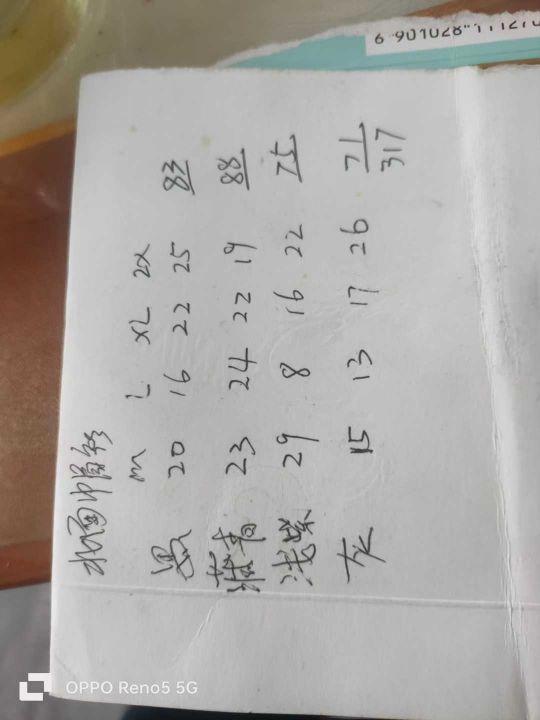 m L XL 2X
黑 20 16 22 25 83
藏青 23 24 22 19 88
浅紫 29 8 16 22 75
灰 15 13 17 26 71
317
6 901028"
OPPO Reno5 5G